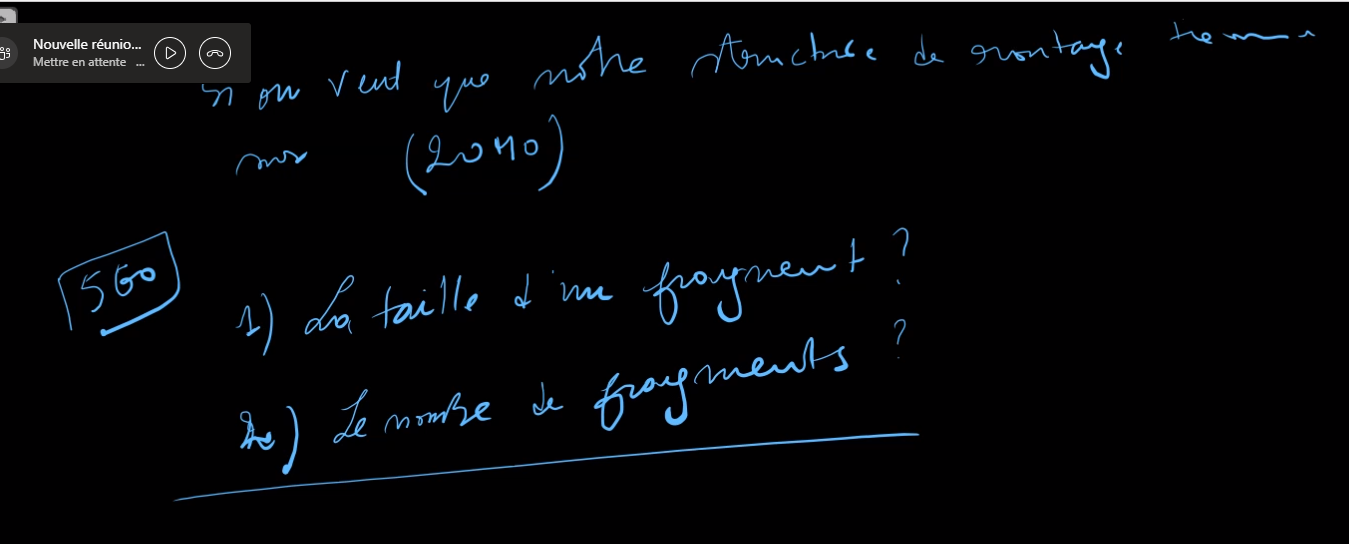 Nouvelle réunio...
Mettre en attente ...
Si on veut que notre structure de montage tienne
sur (20 MO)
560
1) La taille d'un fragment ?
2) Le nombre de fragments ?